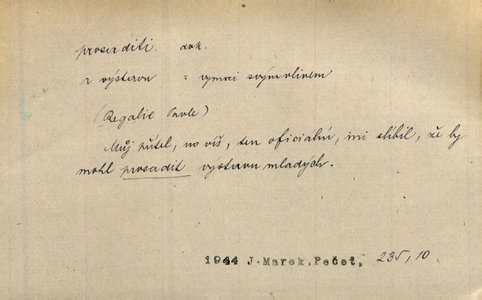 prosaditi dok.
výstavu = vymoci svým vlivem
Můj přítel, no víš, ten oficiální, mi slíbil, že by
mohl prosadit výstavu mladých.
1944 J.Marek.Pečeť, 235, 10.